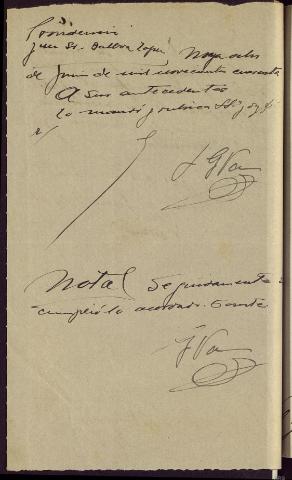 Providencia
Juez Sr. Balboa López Noya ocho
de Junio de mil novecientos cuarenta
A sus antecedentes
lo mandó y rubrica SSª doy fé
Nota/ Seguidamente se
cumplió lo acordado. Doy fé